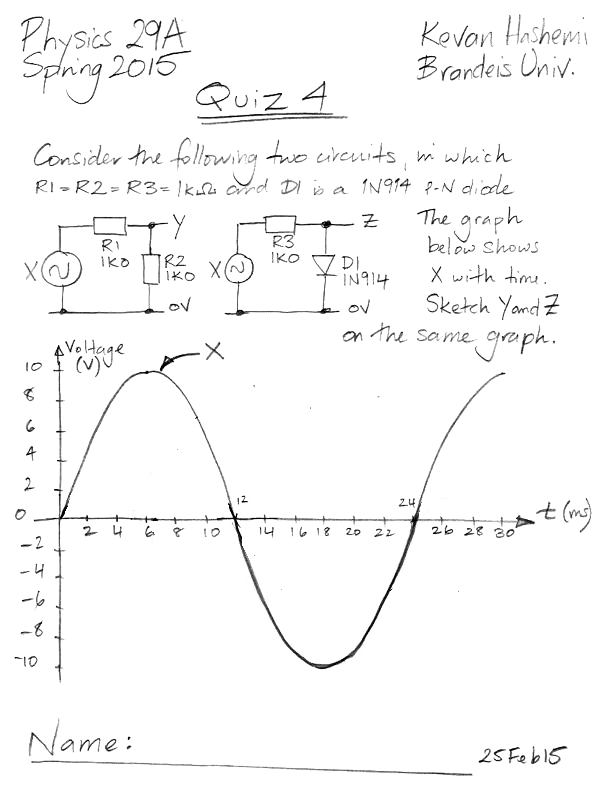 Physics 29A
Spring 2015
Kevan Hashemi
Brandeis Univ.
Quiz 4
Consider the following two circuits, in which
R1 = R2 = R3 = 1kΩ and D1 is a 1N914 P-N diode
X
R1
1KΩ
Y
R2
1KΩ
0V
X
R3
1KΩ
Z
D1
1N914
0V
The graph
below shows
X with time.
Sketch Y and Z
on the same graph.
Voltage
(V)
X
10
8
6
4
2
0
-2
-4
-6
-8
-10
2 4 6 8 10 12 14 16 18 20 22 24 26 28 30
t (ms)
Name:
25Feb15